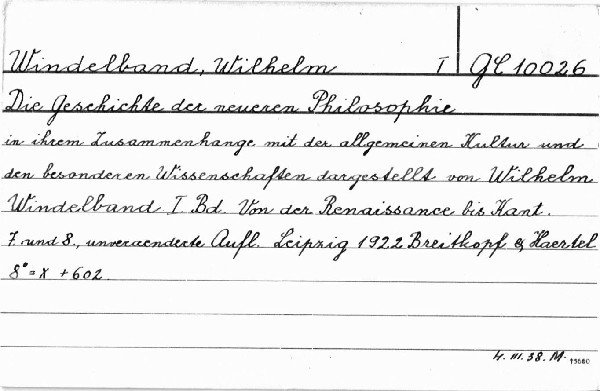 Windelband, Wilhelm I GC 10026
Die Geschichte der neueren Philosophie
in ihrem Zusammenhange mit der allgemeinen Kultur und
den besonderen Wissenschaften dargestellt von Wilhelm
Windelband I. Bd. Von der Renaissance bis Kant.
7. und 8., unveraenderte Aufl. Leipzig 1922 Breitkopf & Haertel
8° = X + 602
4. III. 38. M. 15680